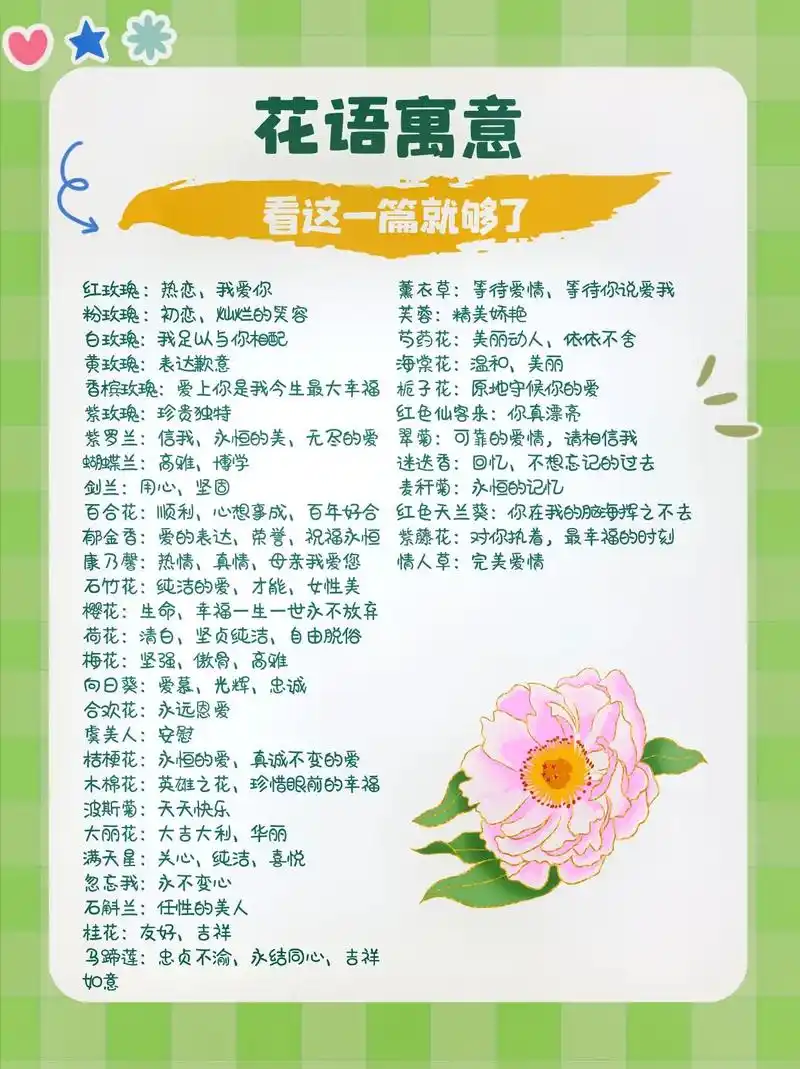 花语寓意
看这一篇就够了
红玫瑰：热恋、我爱你
粉玫瑰：初恋、灿烂的笑容
白玫瑰：我足以与你相配
黄玫瑰：表达歉意
香槟玫瑰：爱上你是我今生最大幸福
紫玫瑰：珍贵独特
紫罗兰：信我、永恒的美、无尽的爱
蝴蝶兰：高雅、博学
剑兰：用心、坚固
百合花：顺利、心想事成、百年好合
郁金香：爱的表达、荣誉、祝福永恒
康乃馨：热情、真情、母亲我爱您
石竹花：纯洁的爱、才能、女性美
樱花：生命、幸福一生一世永不放弃
荷花：清白、坚贞纯洁、自由脱俗
梅花：坚强、傲骨、高雅
向日葵：爱慕、光辉、忠诚
合欢花：永远恩爱
虞美人：安慰
桔梗花：永恒的爱、真诚不变的爱
木棉花：英雄之花、珍惜眼前的幸福
波斯菊：天天快乐
大丽花：大吉大利、华丽
满天星：关心、纯洁、喜悦
忽忘我：永不变心
石斛兰：任性的美人
桂花：友好、吉祥
马蹄莲：忠贞不渝、永结同心、吉祥
如意
薰衣草：等待爱情、等待你说爱我
芙蓉：精美娇艳
芍药花：美丽动人、依依不舍
海棠花：温和、美丽
栀子花：原地守候你的爱
红色仙客来：你真漂亮
翠菊：可靠的爱情，请相信我
迷迭香：回忆、不想忘记的过去
麦秆菊：永恒的记忆
红色天兰葵：你在我的脑海挥之不去
紫藤花：对你执着，最幸福的时刻
情人草：完美爱情